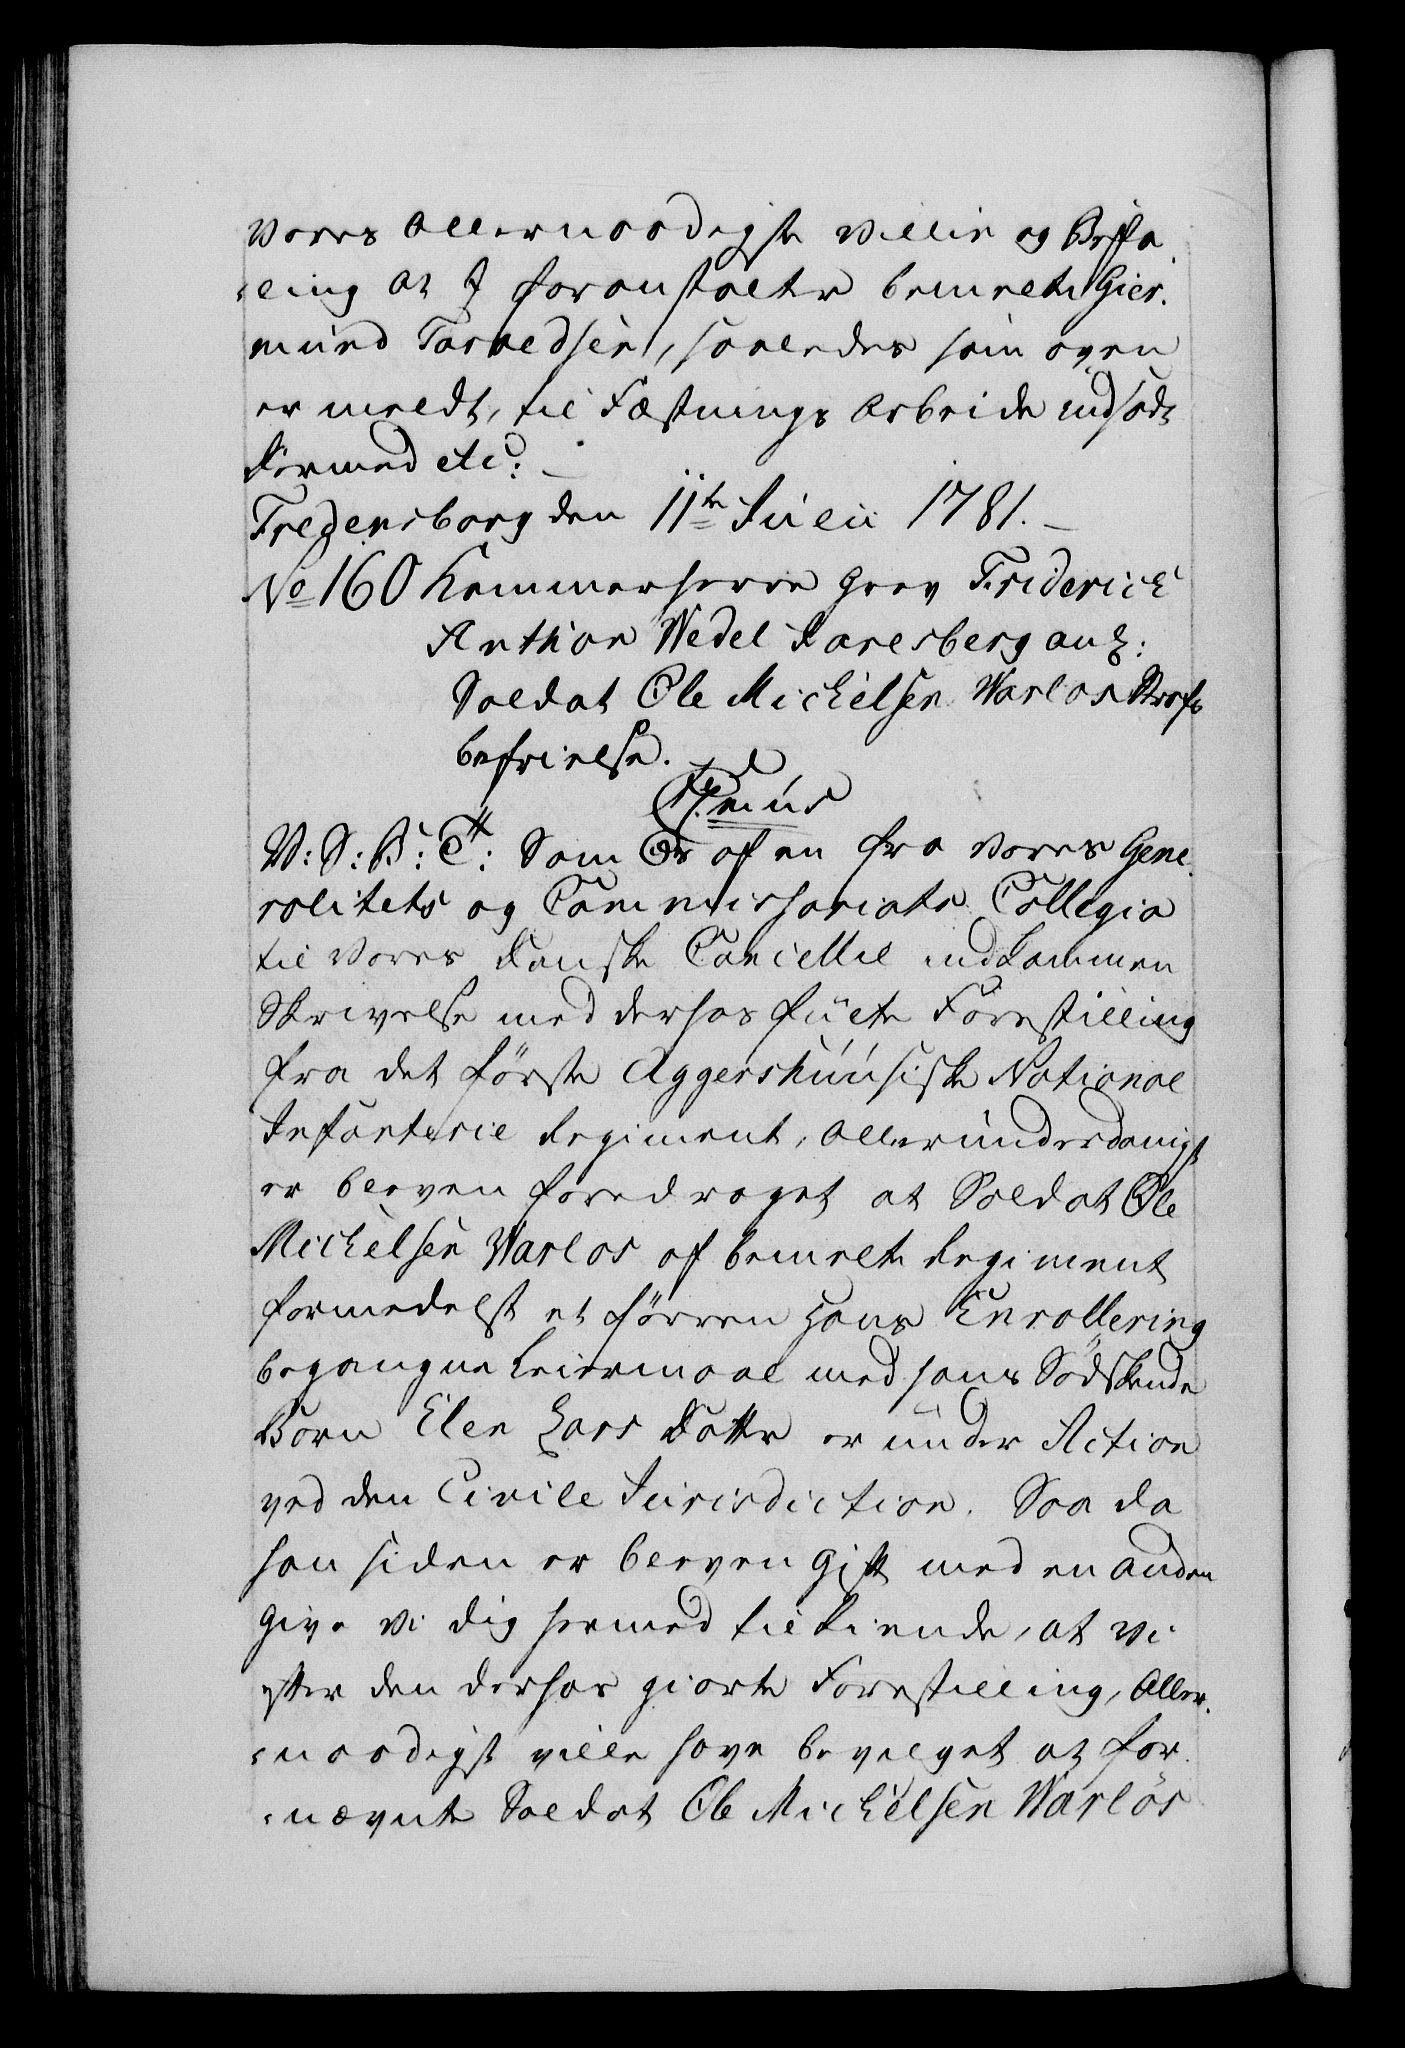 Vores allernaadigste Villie og Befa¬
¬ling at I foranstalter bemeldte Gier¬
mund Torvedsen, saaledes som oven
er meldt, til Fæstnings Arbeide indsadt
Dermed etc:
Fredensborg den 11te Julii 1781.
No 160 Kammerherre Grev Friderich
Anthon Wedel Jarlsberg ang:
Soldat Ole Michelsen Warlos Strafs
befrielse.
V: S: B: T: Som Os af en fra Vores Gene¬
ralitets og Commissariats Collegio
til Vores Danske Cancellie indkommen
Skrivelse med derhos fulte Forestilling
fra det förste Aggershuusiske National
Infanterie Regiment, allerunderdanigst
er bleven foredraget at Soldat Ole
Michelsen Warlos af bemelte Regiment
formedelst et förren hans Enrollering
begangne Leiermaal med hans Södskende
Børn Elen Lars Datter er under Action
ved den Civile Jurisdiction. Saa da
han siden er bleven gift med en anden
give Vi dig hermed tilkiende, at Vi
efter den derhos giorte Forestilling, Aller¬
¬naadigst ville have bevilget at for¬
¬nævnte Soldat Ole Michelsen Warlös